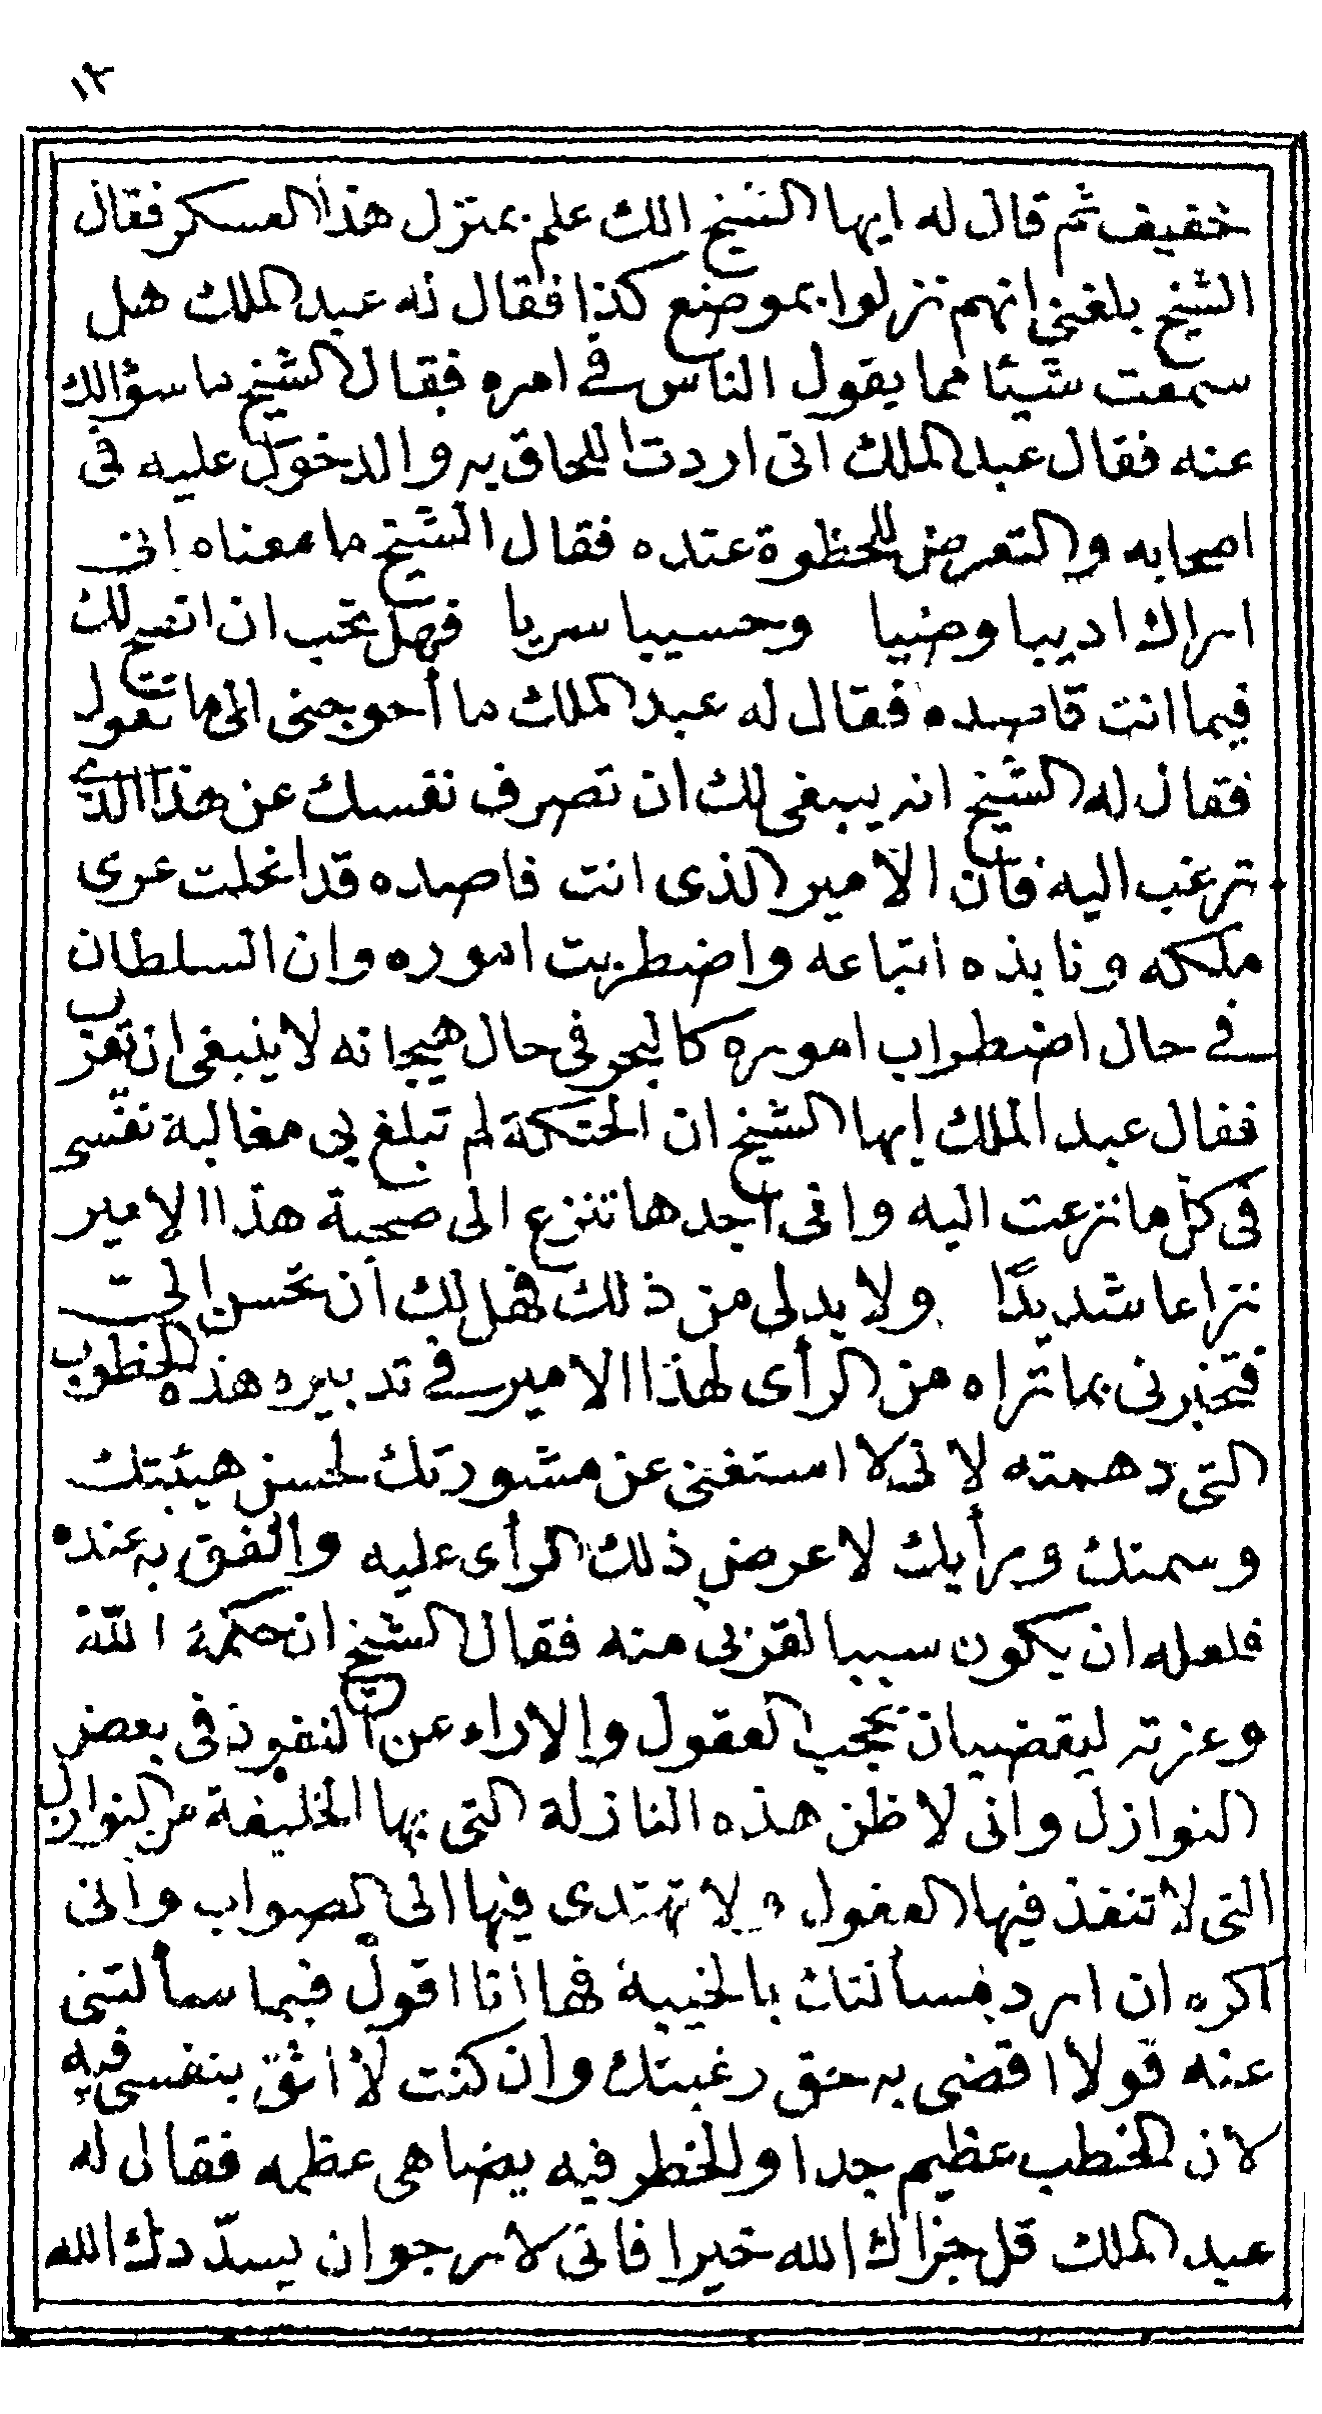 ١٢
خفيف ثم قال له ايها الشيخ الك علم بمنزل هذا العسكر فقال
الشيخ بلغني انهم نزلوا بموضع كذا فقال له عبد الملك هل
سمعت شيئا مما يقول الناس في امره فقال الشيخ ما سؤالك
عنه فقال عبد الملك اني اردت اللحاق به والدخول عليه في
اصحابه والتعرض للحظوة عنده فقال الشيخ ما معناه اني
اراك اديبا وضيا وحسيبا سريا فهل تحب ان انصح لك
فيما انت قاصده فقال له عبد الملك ما أحوجني الى ما تقول
فقال له الشيخ انه ينبغي لك ان تصرف نفسك عن هذا الذي
ترغب اليه فان الامير الذي انت قاصده قد انحلت عرى
ملكه ونابذه اتباعه واضطربت اموره وان السلطان
في حال اضطراب اموره كالبحر في حال هيجانه لا ينبغي ان تقرب
فقال عبد الملك ايها الشيخ ان الحنكة لم تبلغ بي مغالبة نفسي
في كل ما نزعت اليه واني اجدها تنزع الى صحبة هذا الامير
نزاعا شديدًا ولا بد لي من ذلك فهل لك أن تحسن الي
فتخبرني بما تراه من الرأى لهذا الامير في تدبيره هذه الخطوب
التي دهمته لاني لا استغني عن مشورتك لحسن هيئتك
وسمتك ورأيك لاعرض ذلك الرأى عليه به عنده
فلعله ان يكون سببا لقربي منه فقال الشيخ ان حكمة الله
وعزته ليقضيان بحجب العقول والاراء عن النفوذ في بعض
النوازل واني لاظن هذه النازلة التي بها الخليفة من النوازل
التي لا تنفذ فيها العقول ولا تهتدى فيها الى الصواب وأني
اكره ان ارد مسألتك بالخيبة فها أنا اقول فيما سألتني
عنه قولا اقضي به حق رغبتك وان كنت لا اثق بنفسي فيه
لان الخطب عظيم جدا والخطر فيه يضاهى عظمه فقال له
عبد الملك قل جزاك الله خيرا فاني لارجو ان يسدّدك الله